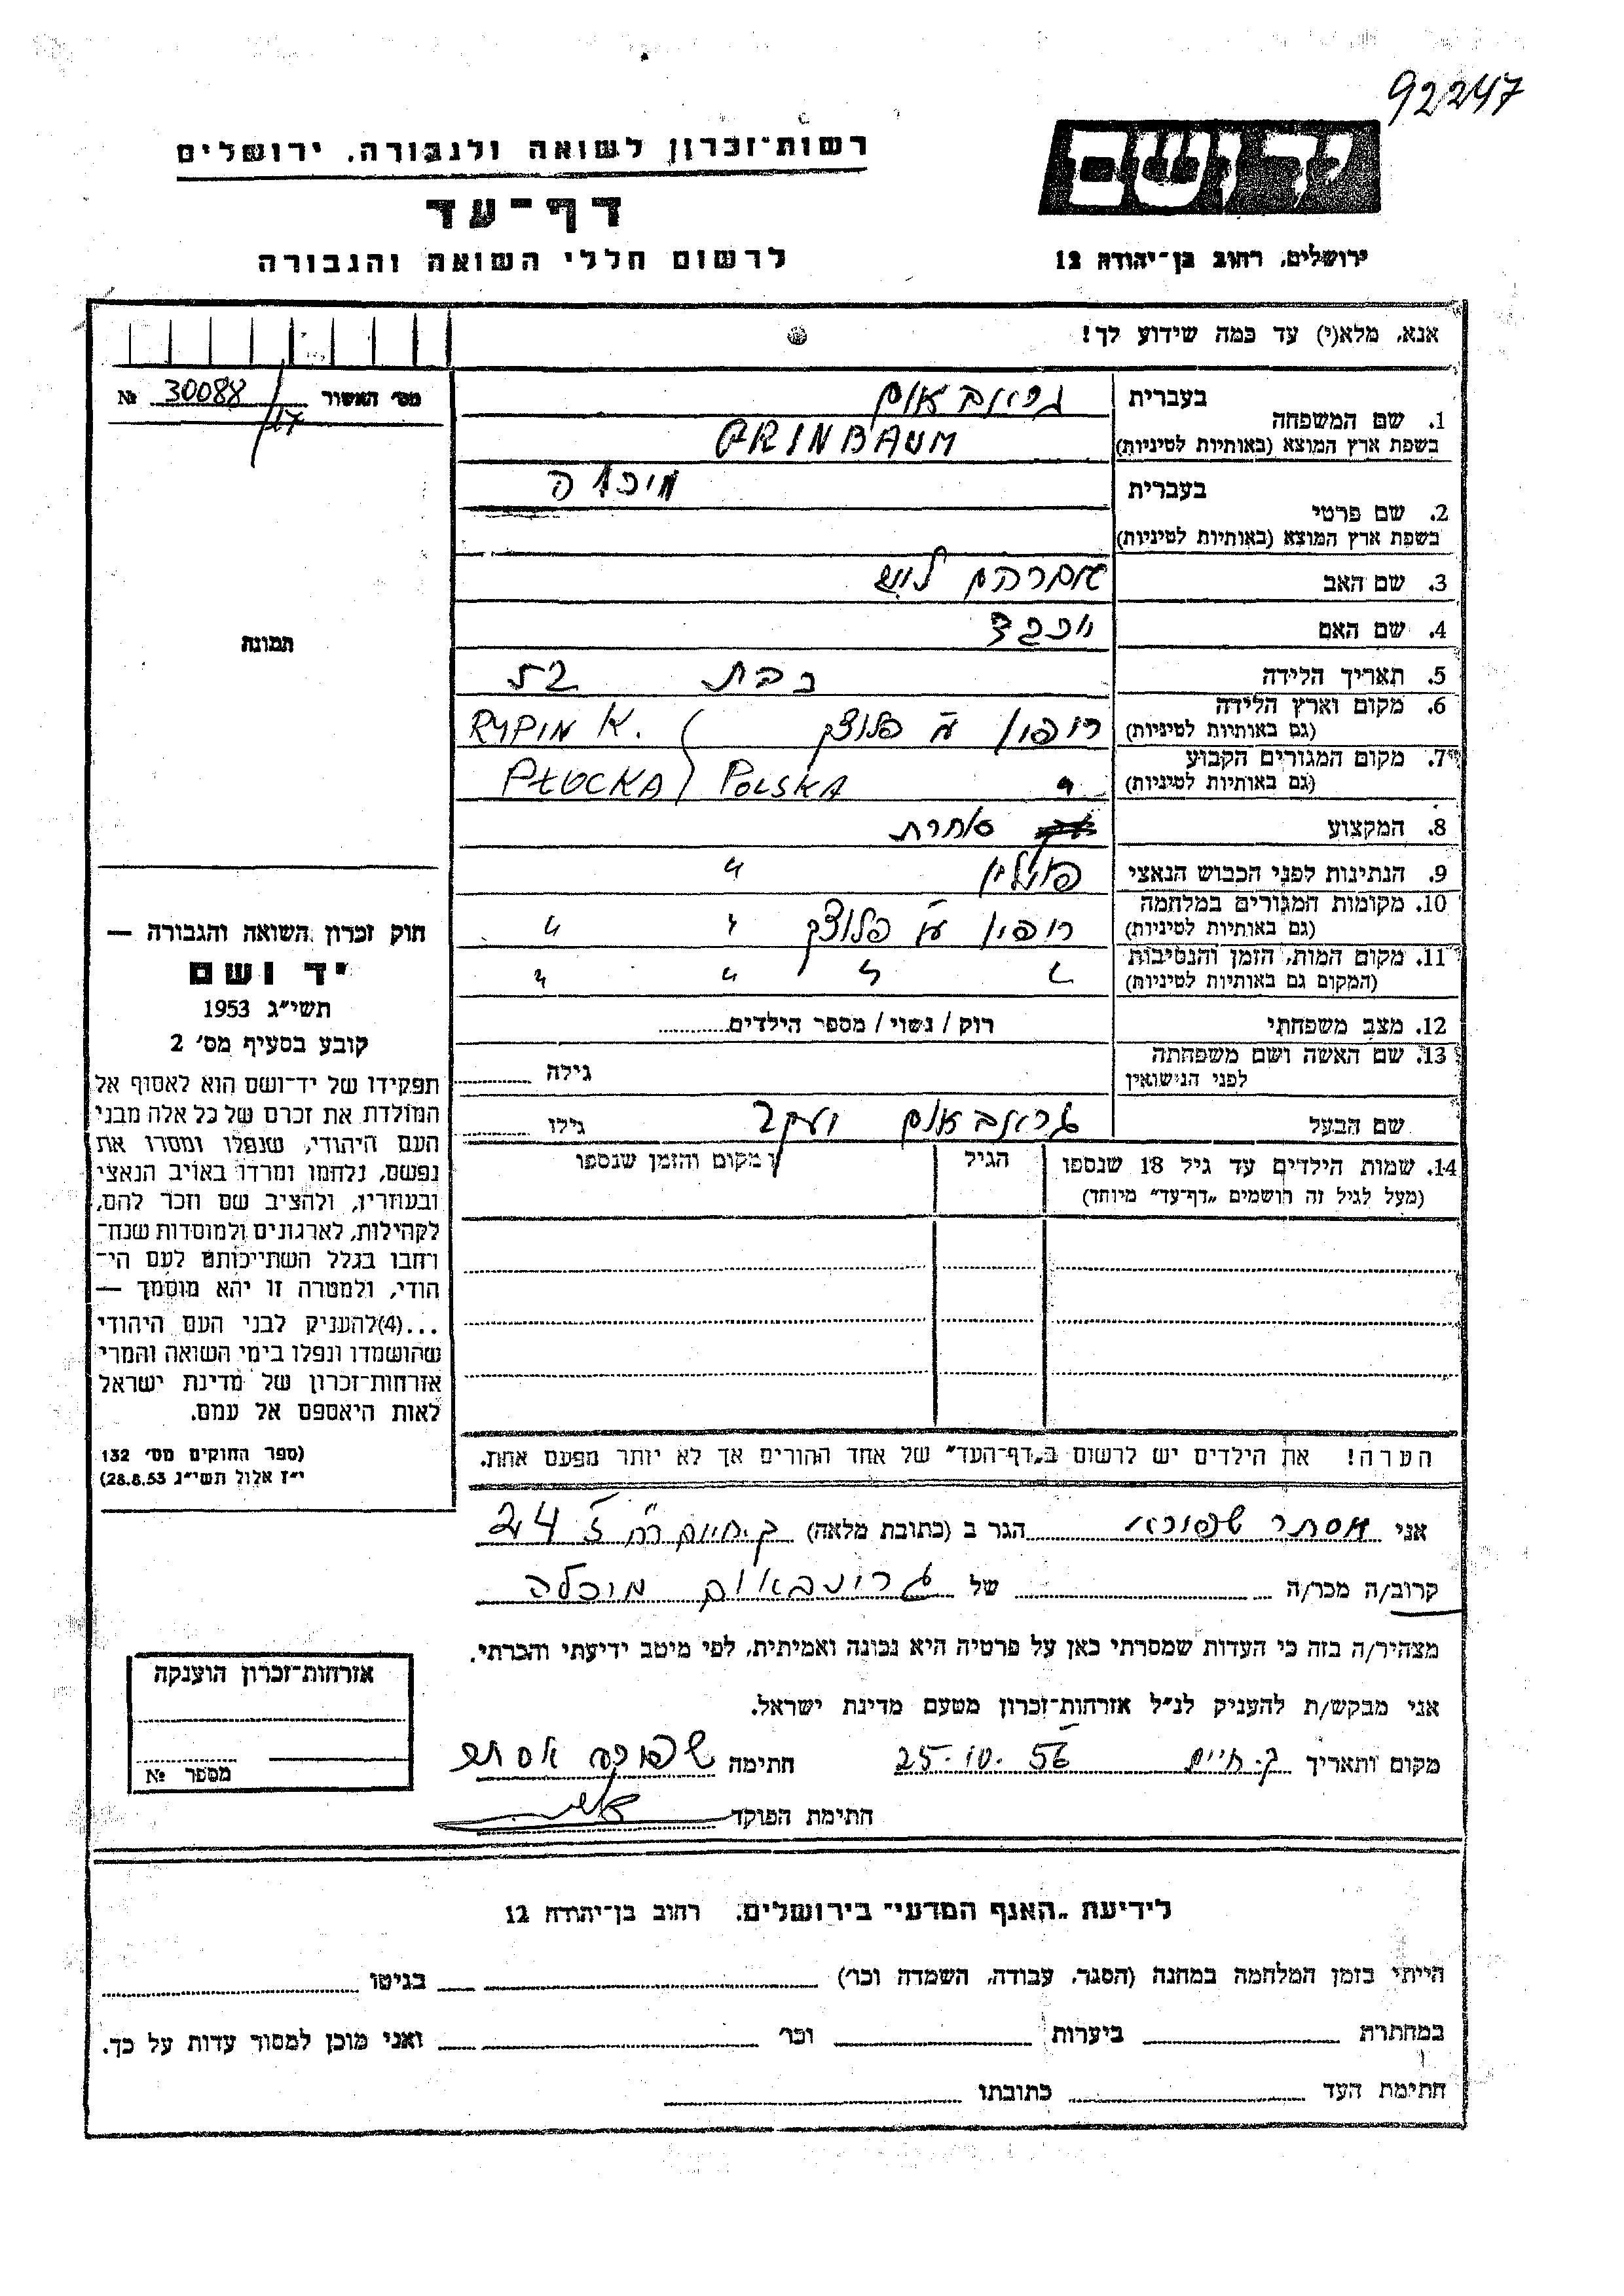 92247
רשות־זכרון לשואה ולגבורה, ירושלים
יד ושם
דף־עד
לרשום חללי השואה והגבורה
ירושלים, רחוב בן־יהודה 12
אנא, מלא(י) עד כמה שידוע לך!
מס׳ האשור 30088/17 №
1. שם המשפחה בעברית גרינבאום
בשפת ארץ המוצא (באותיות לטיניות) GRINBAUM
2. שם פרטי בעברית מיכלה
בשפת ארץ המוצא (באותיות לטיניות)
3. שם האב אברהם ליב
4. שם האם יוכבד
תמונה
5. תאריך הלידה כבת 52
6. מקום וארץ הלידה (גם באותיות לטיניות) ריפין ע״י פלוצק RYPIN K.
7. מקום המגורים הקבוע (גם באותיות לטיניות) " PŁOCKA POLSKA
8. המקצוע סוחרת
9. הנתינות לפני הכבוש הנאצי פולין "
10. מקומות המגורים במלחמה (גם באותיות לטיניות) ריפין ע״י פלוצק " "
11. מקום המות, הזמן והנסיבות (המקום גם באותיות לטיניות) " " " "
12. מצב משפחתי רוק / נשוי / מספר הילדים
13. שם האשה ושם משפחתה לפני הנישואין גילה
שם הבעל גרינבאום יעקב גילו
14. שמות הילדים עד גיל 18 שנספו הגיל מקום והזמן שנספו
(מעל לגיל זה רושמים „דף־עד” מיוחד)
חוק זכרון השואה והגבורה —
יד ושם
תשי״ג 1953
קובע בסעיף מס׳ 2
תפקידו של יד־ושם הוא לאסוף אל
המולדת את זכרם של כל אלה מבני
העם היהודי, שנפלו ומסרו את
נפשם, נלחמו ומרדו באויב הנאצי
ובעוזריו, ולהציב שם וזכר להם,
לקהילות, לארגונים ולמוסדות שנח־
רבו בגלל השתייכותם לעם הי־
הודי, ולמטרה זו יהא מוסמך —
...(4)להעניק לבני העם היהודי
שהושמדו ונפלו בימי השואה והמרי
אזרחות־זכרון של מדינת ישראל
לאות היאספם אל עמם.
(ספר החוקים מס׳ 132
י״ז אלול תשי״ג 28.8.53)
הערה! את הילדים יש לרשום ב„דף־העד” של אחד ההורים אך לא יותר מפעם אחת.
אני אסתר הגר ב (כתובת מלאה) ק. חיים 24
קרוב/ה מכר/ה של גרינבאום מיכלה
מצהיר/ה בזה כי העדות שמסרתי כאן על פרטיה היא נכונה ואמיתית, לפי מיטב ידיעתי והכרתי.
אני מבקש/ת להעניק לנ״ל אזרחות־זכרון מטעם מדינת ישראל.
מקום ותאריך ק. חיים 25.10.56 חתימה אסתר
חתימת הפוקד
אזרחות־זכרון הוענקה
מספר №
לידיעת „האגף המדעי” בירושלים, רחוב בן־יהודה 12
הייתי בזמן המלחמה במחנה (הסגר, עבודה, השמדה וכו׳) בגיטו
במחתרת ביערות וכו׳ ואני מוכן למסור עדות על כך.
חתימת העד כתובתו